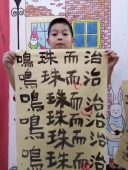 鳴珠而治
鳴珠而治
鳴珠而治
鳴珠而治
鳴珠而治